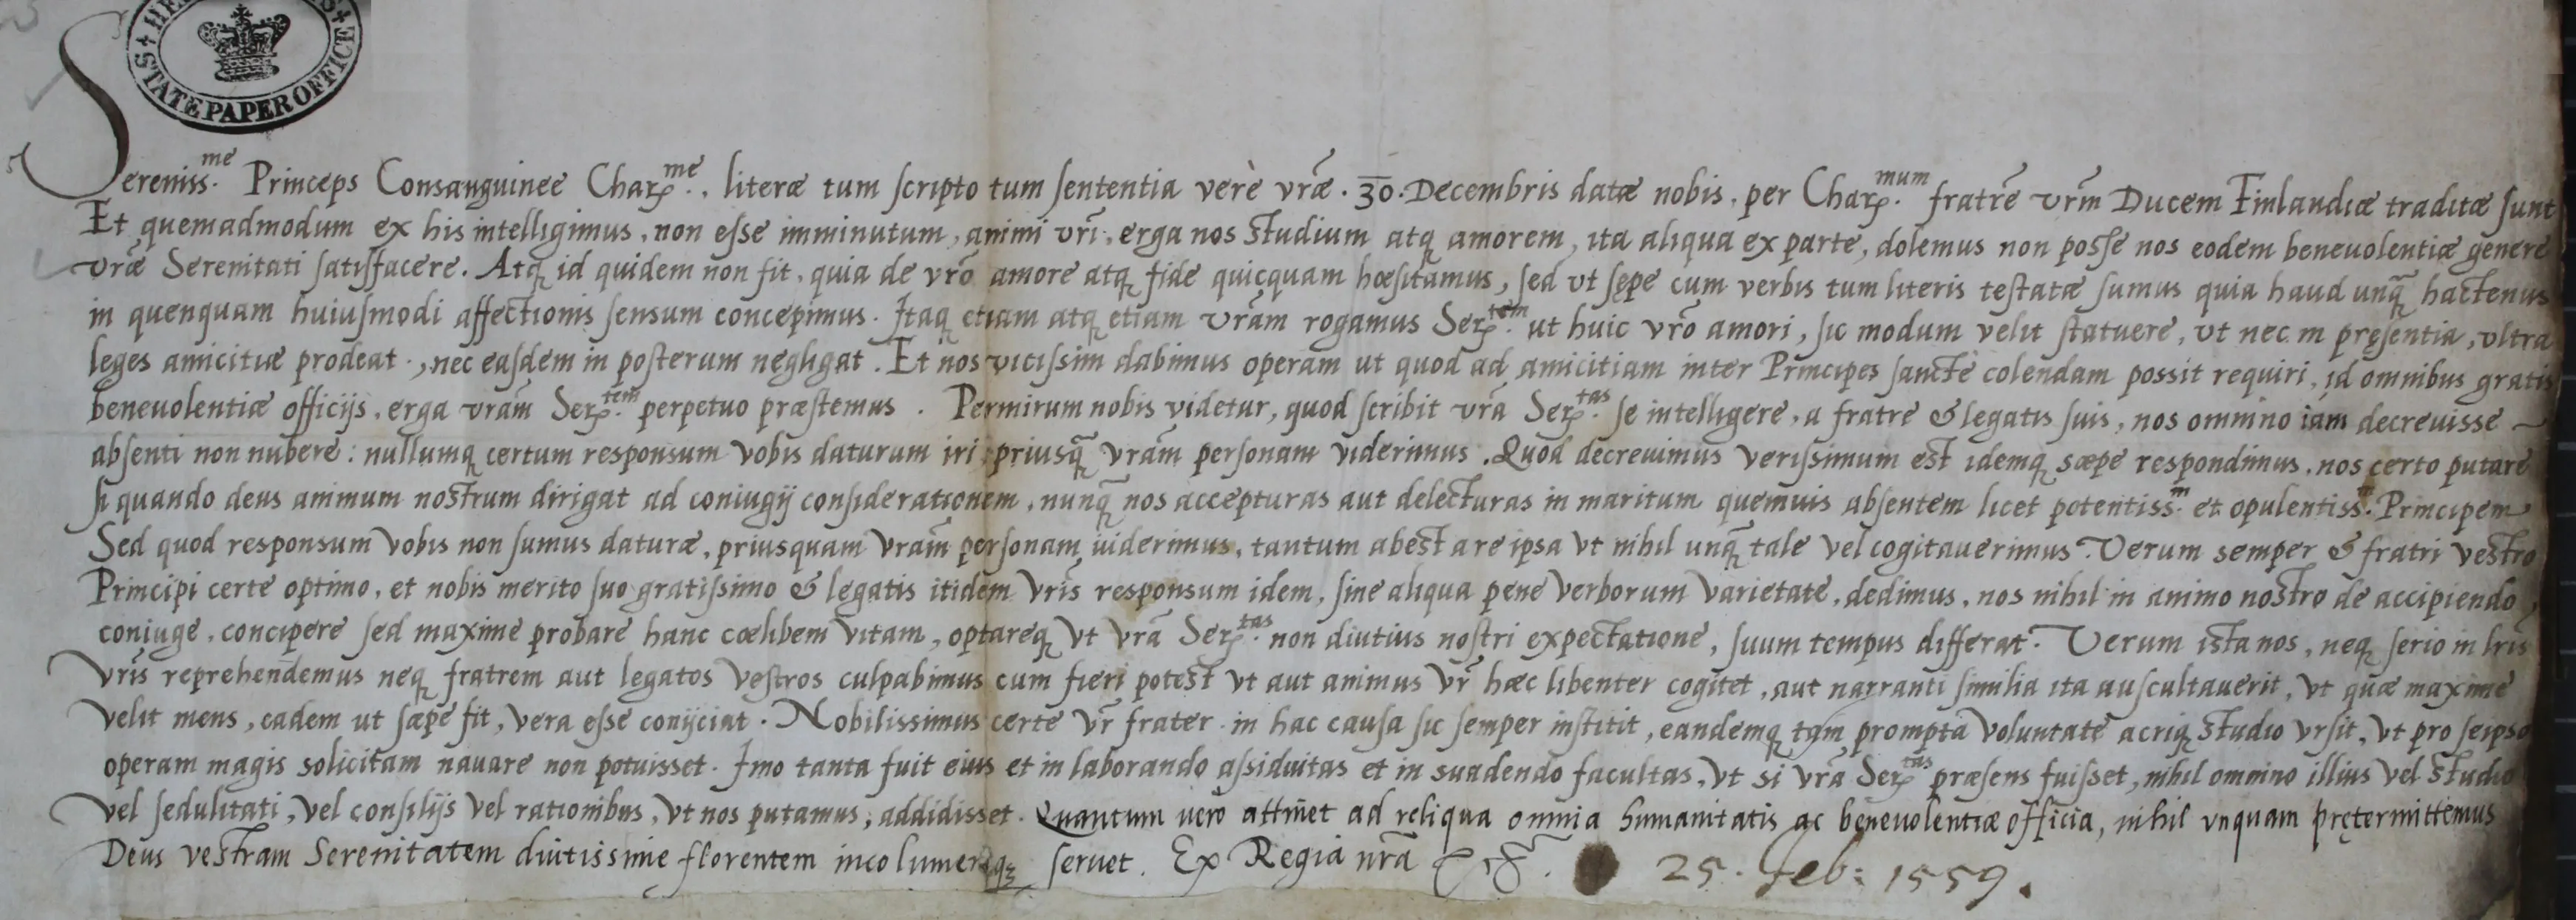 STATE PAPER OFFICE
Sereniss.me Princeps Consanguinee Char.me, literæ tum scripto tum sententia verè vræ . 30 . Decembris datæ nobis, per Char.mum fratrē vrm Ducem Finlandiæ traditæ sunt
Et quemadmodum ex his intelligimus, non esse imminutum, animi vri, erga nos studium atq amorem, ita aliqua ex parte, dolemus non posse nos eodem beneuolentiæ genere
vræ Serenitati satisfacere. Atq id quidem non fit, quia de vro amore atq fide quicquam hæsitamus, sed vt sępe cum verbis tum literis testatæ sumus quia haud unq̄ hactenus
in quenquam huiusmodi affectionis sensum concepimus. Itaq etiam atq etiam vram rogamus Ser.tem ut huic vro amori, sic modum velit statuere, vt nec in pręsentia, vltra
leges amicitiæ prodeat, nec easdem in posterum negligat. Et nos vicissim dabimus operam ut quod ad amicitiam inter Principes sanctè colendam possit requiri, id omnibus gratis
beneuolentiæ officijs, erga vram Ser.tem perpetuo præstemus. Permirum nobis videtur, quod scribit vra Ser.tas se intelligere, a fratre & legatis suis, nos omnino iam decreuisse
absenti non nubere: nullumq certum responsum vobis daturum iri priusq̄ vram personam viderimus. Quod decreuimus verissimum est idemq sæpe respondimus, nos certo putare
si quando deus animum nostrum dirigat ad coniugij considerationem, nunq̄ nos accepturas aut delecturas in maritum quemuis absentem licet potentiss.m et opulentiss.m Principem
Sed quod responsum vobis non sumus daturæ, priusquam vram personam uiderimus, tantum abest a re ipsa vt nihil unq̄ tale vel cogitauerimus. Verum semper & fratri vestro
Principi certe optimo, et nobis merito suo gratissimo & legatis itidem vris responsum idem, sine aliqua pene verborum varietate, dedimus, nos nihil in animo nostro de accipiendo
coniuge, concipere sed maxime probare hanc cœlibem vitam, optareq vt vra Ser.tas non diutius nostri expectatione, suum tempus differat. Verum ista nos, neq serio in lris
vris reprehendemus neq fratrem aut legatos vestros culpabimus cum fieri potest vt aut animus vr hæc libenter cogitet, aut narranti similia ita auscultauerit, vt quæ maxime
velit mens, eadem ut sæpe fit, vera esse conijciat. Nobilissimus certe vr frater in hac causa sic semper institit, eandemq tam prompta voluntate acriq studio vrsit, vt pro seipso
operam magis solicitam nauare non potuisset. Imo tanta fuit eius et in laborando assiduitas et in suadendo facultas, vt si vra Ser.tas præsens fuisset, nihil omnino illius vel studio
vel sedulitati, vel consilijs vel rationibus, vt nos putamus, addidisset. Quantum uero attinet ad reliqua omnia humanitatis ac beneuolentiæ officia, nihil vnquam prętermittemus
Deus vestram Serenitatem diutissime florentem incolumemq seruet. Ex Regia nra 25. Feb: 1559.